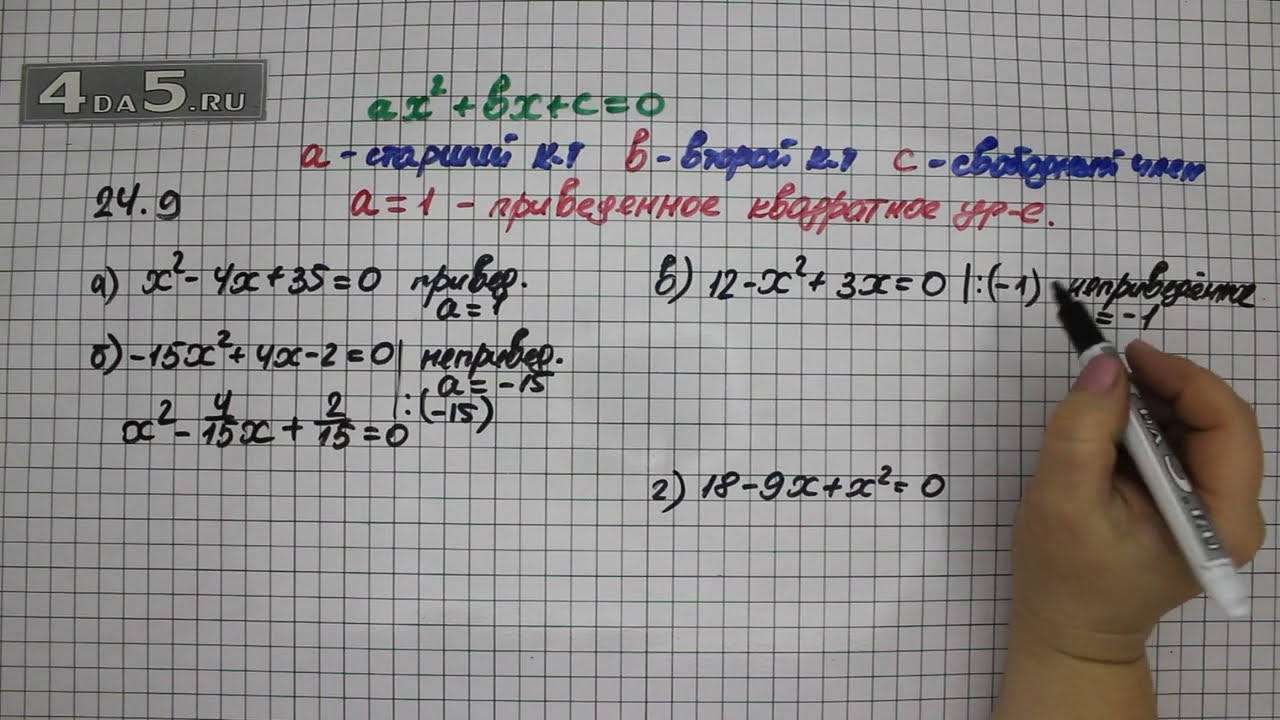 4DA5.RU
ax² + bx + c = 0
a - старший к.т b - второй к.т c - свободный член
24.9
a = 1 - приведенное квадратное ур-е.
а) x² - 4x + 35 = 0 привед.
a = 1
б) -15x² + 4x - 2 = 0 | непривед.
a = -15
x² - 4/15 x + 2/15 = 0 |:(-15)
в) 12 - x² + 3x = 0 |:(-1)
= -1
г) 18 - 9x + x² = 0